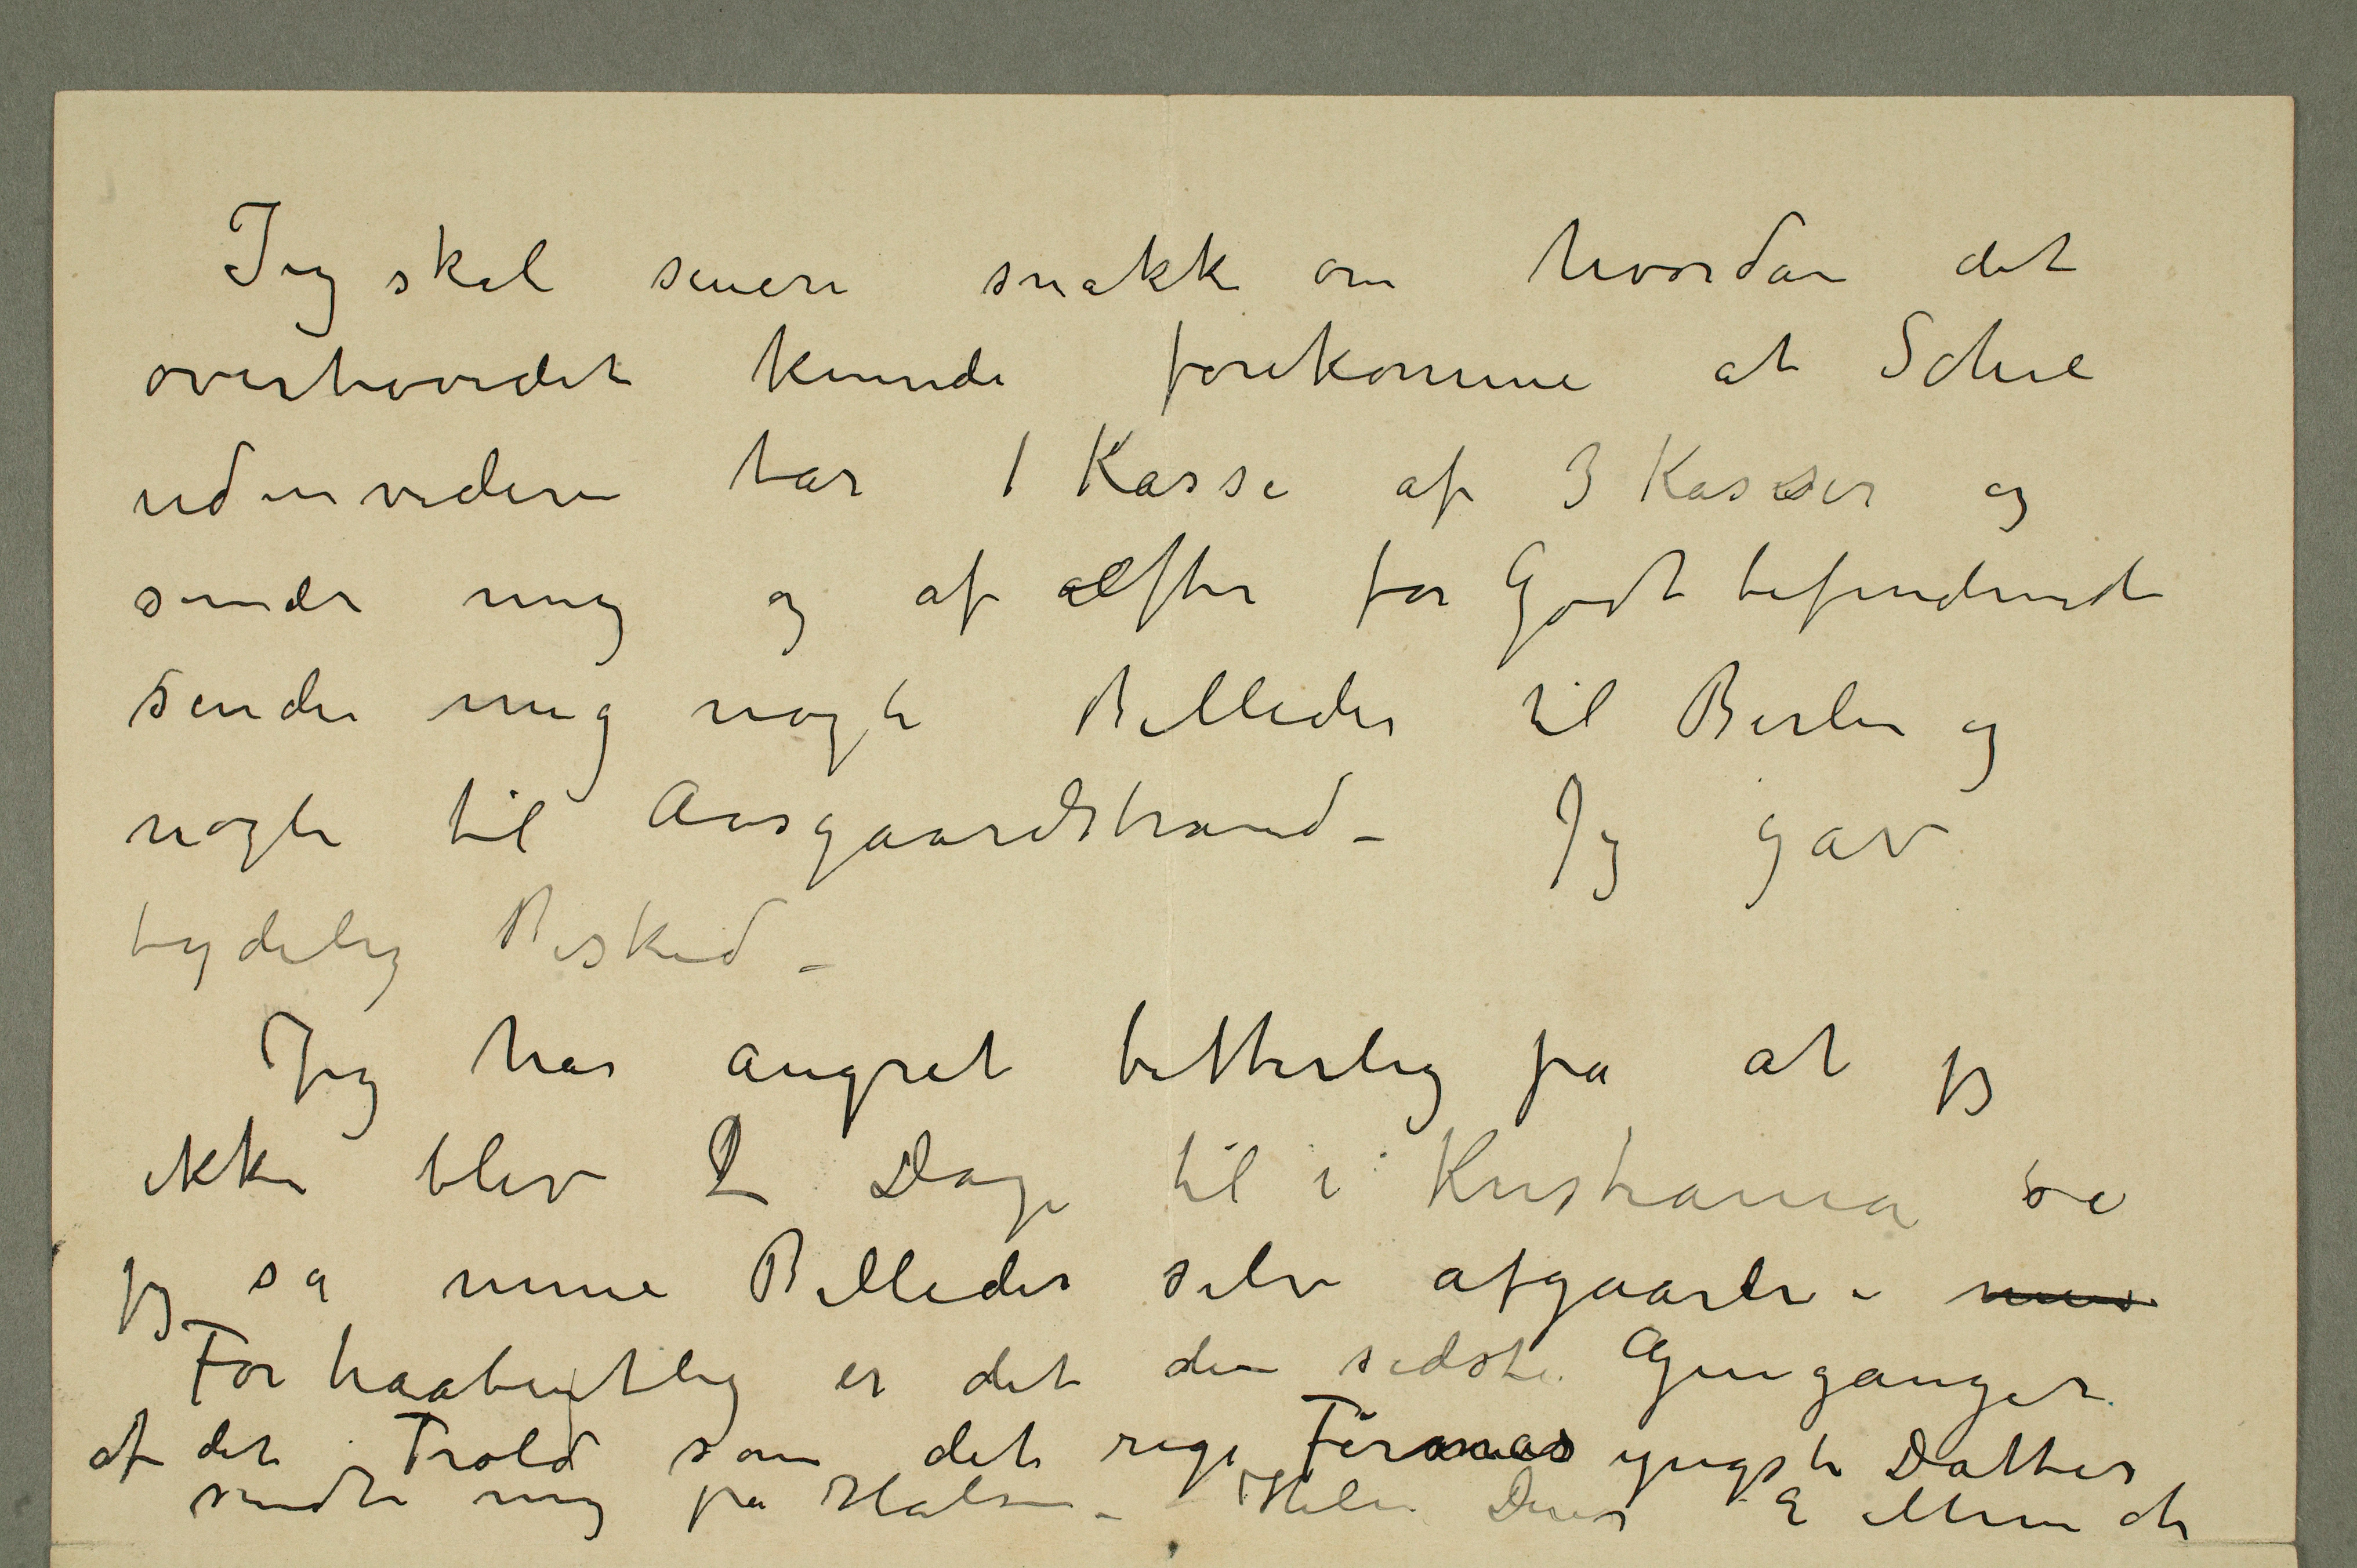 Jeg skal senere snakke om hvordan det
overhovedet kunde forekomme at Schre
uden videre tar 1 Kasse af 3 Kasser og
sender mig og af efter for Godt befindende
sender mig nogle Billeder til Berlin og
nogle til Aasgaardstrand – Jeg gav
tydelig Besked –
Jeg har angret bitterlig på at jeg
ikke blev 2 Dage til i Kristiania så
jeg så mine Billeder selv afgaarde –
Forhaabentlig er det den sidste Gjenganger
af det Trold som det rige Firmas yngste Datter
sendte mig på Halsen – Hilsen Deres E Munch